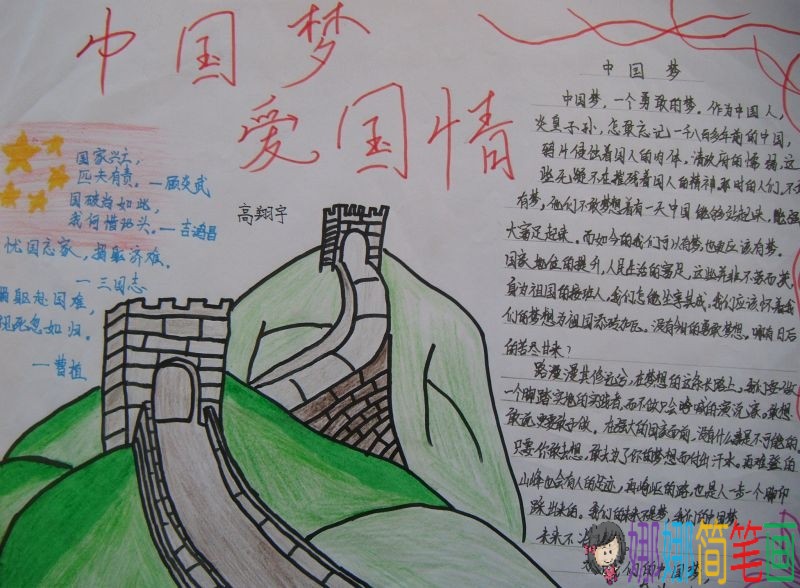 中国梦
爱国情
国家兴亡,
匹夫有责。—顾炎武
国破尚如此,
我何惜此头。—吉鸿昌
忧国忘家,捐躯济难。
—三国志
捐躯赴国难,
视死忽如归。
—曹植
高翔宇
中国梦
中国梦,一个勇敢的梦。作为中国人,
炎皇子孙,怎敢忘记一千八百多年前的中国,
鸦片侵蚀着国人的肉体。清政府的懦弱,这
些无疑不在摧残着国人的精神,那时的人们,不
有梦,他们不敢梦想着有一天中国能够站起来,能强
大富足起来。而如今的我们可以有梦,也更应该有梦。
国家地位的提升,人民生活的富足,这些并非不劳而获,
身为祖国的接班人,我们怎能坐享其成,我们应该怀着我
们的梦想为祖国添砖加瓦。没有今日的勇敢梦想,哪有日后
的苦尽甘来?
路漫漫其修远兮,在梦想的这条长路上,我们要做
一个脚踏实地的实践者,而不做只会夸喊的演说家。敢想
敢说更要敢于做。在强大的国家面前,没有什么事是不可能的。
只要你敢去想,敢去为了你的梦想而付出汗水。再难登的
山峰也会有人的足迹,再崎岖的路,也是人一步一个脚印
踩出来的。我们的未来不是梦,我们的中国梦
未来不
们的中国梦
娜娜简笔画